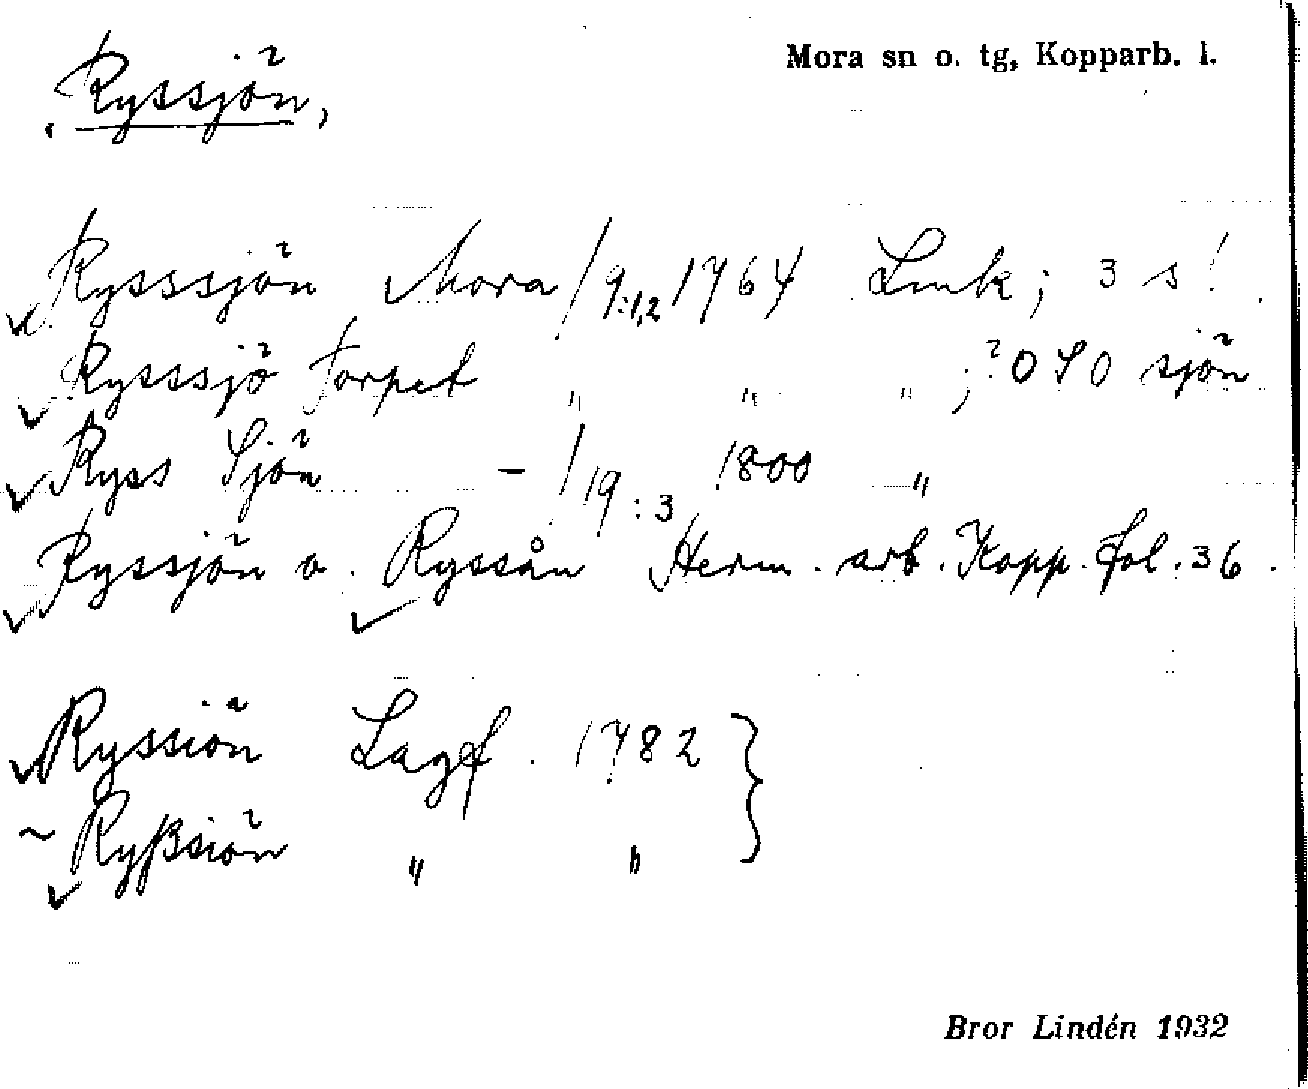 Mora sn o. tg, Kopparb. l.
Ryssjön,
Rysssjön Mora /9:1,2 1764 Lmk; 3 s!
Rysssjö torpet " " " ; ? 0 S 0 sjön
Ryss Sjön - /19:3, 1800 "
Ryssjön o. Ryssån Herm. arb. Kopp. fol. 36.
Ryssiön Lagf. 1782 }
~ Ryßsiön " "
Bror Lindén 1932